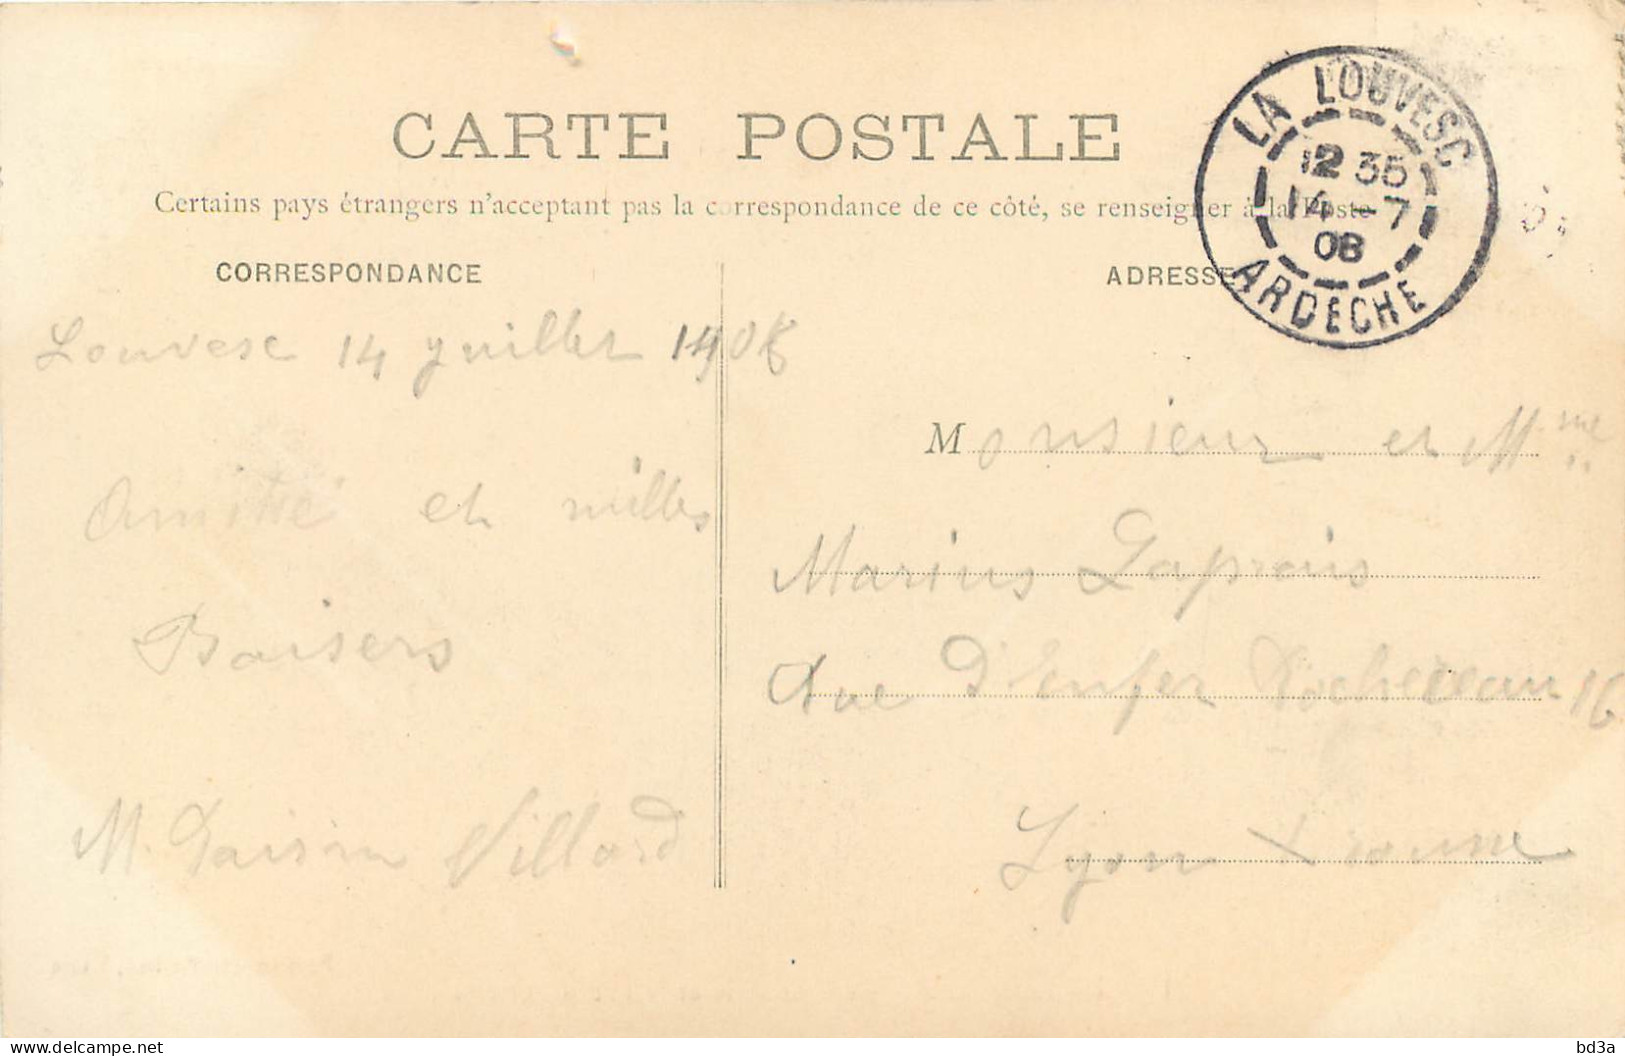 CARTE POSTALE
Certains pays étrangers n'acceptant pas la correspondance de ce côté, se renseigner à la Poste
CORRESPONDANCE
ADRESSE
LA LOUVESC
12 35
14 -7
08
ARDECHE
Louvesc 14 juillet 1908
Amitié et milles
Baisers
M. Villard
Monsieur et Mme
Marius
Rue D'Enfer 16
Lyon
delcampe.net
bd3a